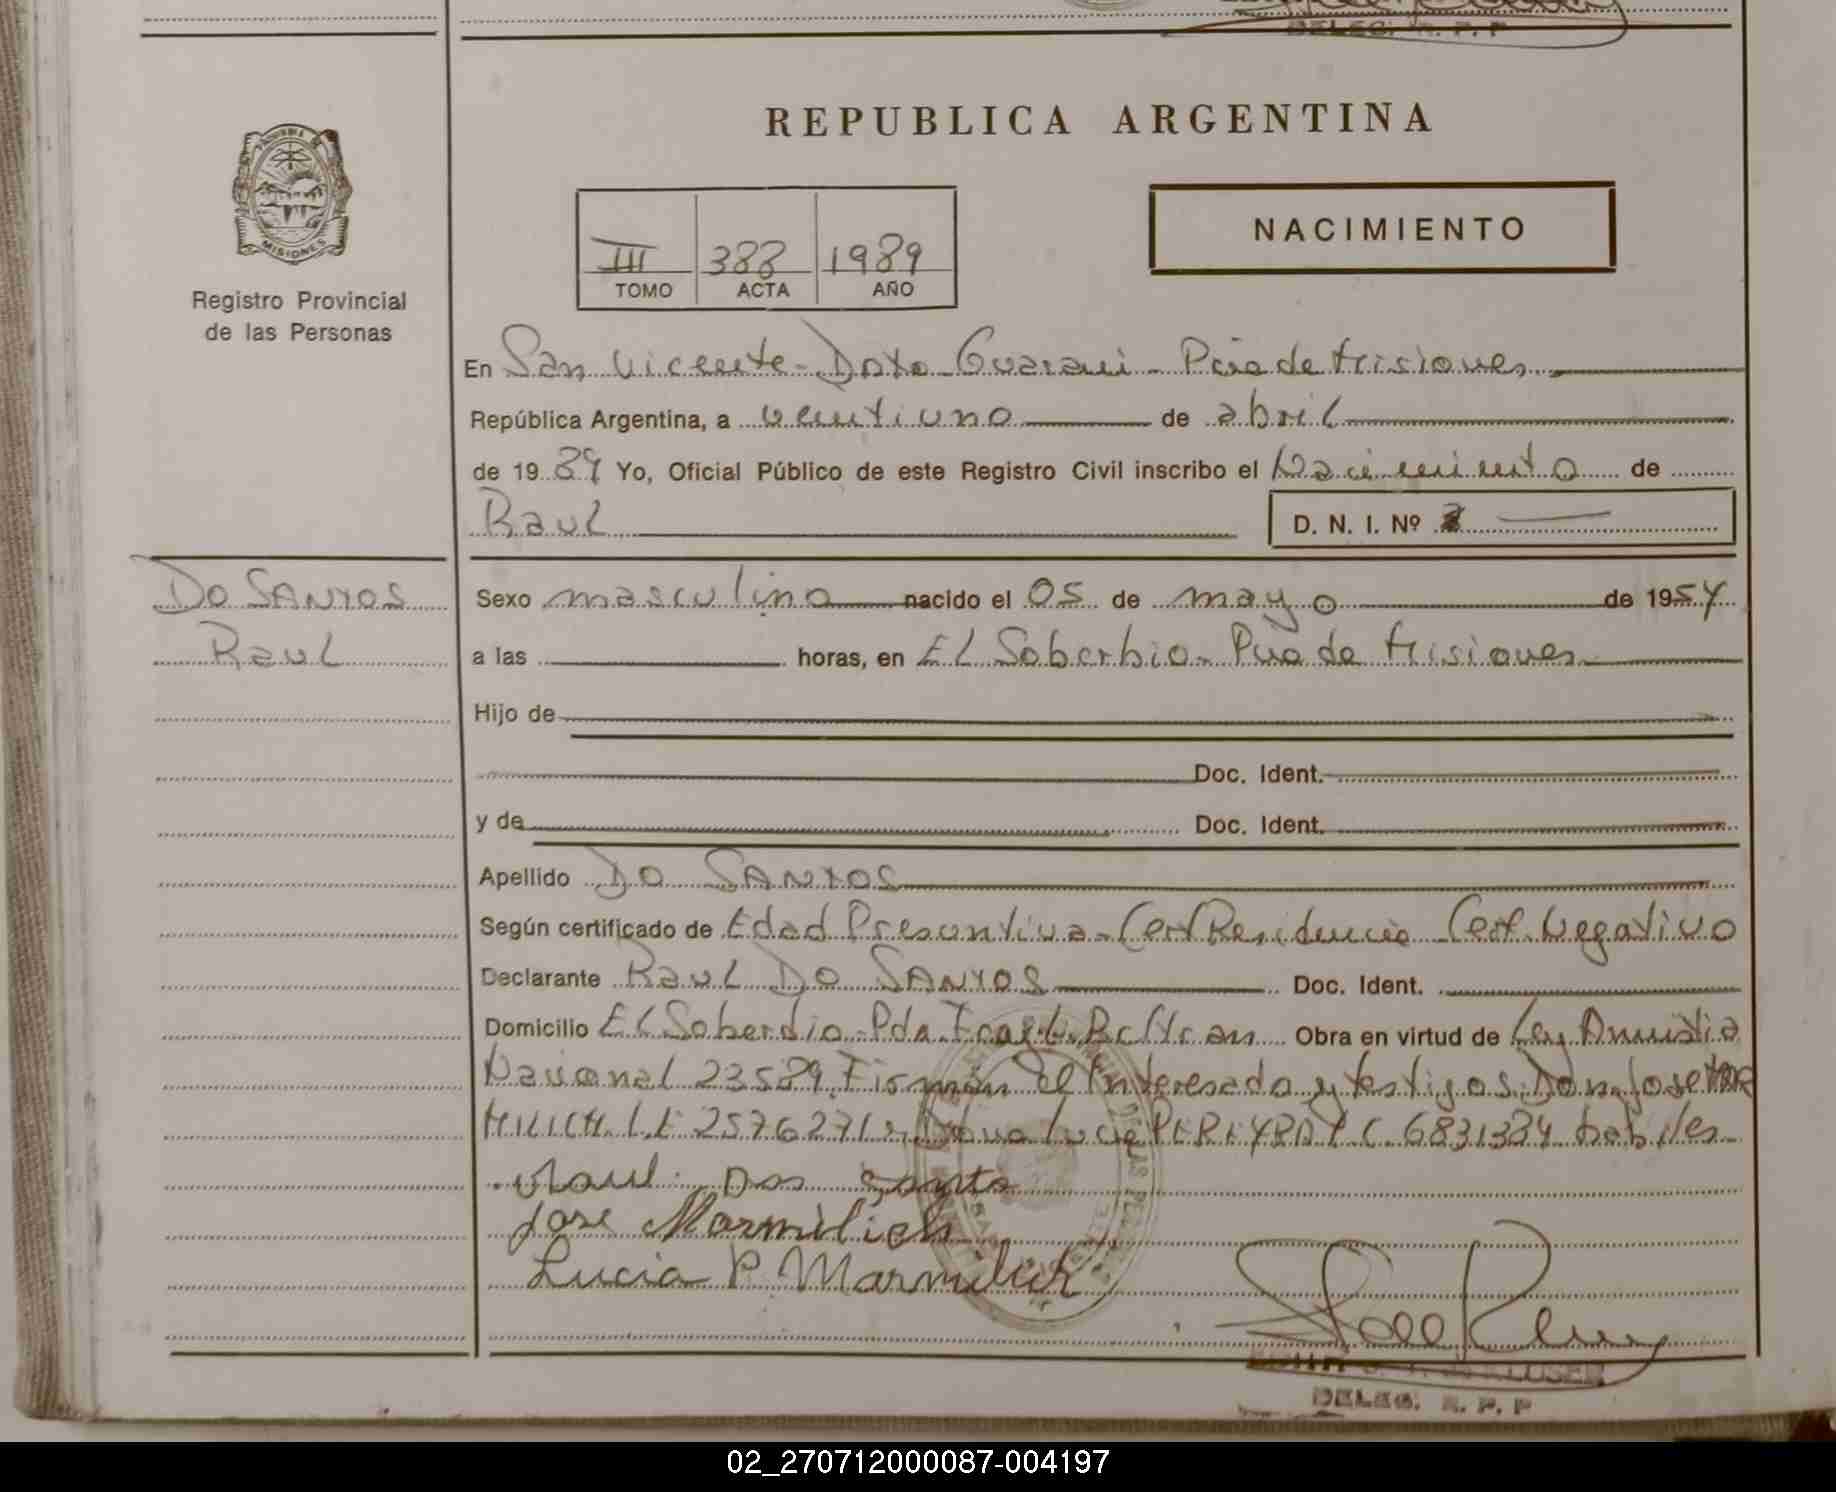 DELEG. R. P. P
REPUBLICA ARGENTINA
MISIONES
Registro Provincial
de las Personas
NACIMIENTO
III 388 1989
TOMO ACTA AÑO
En San Vicente - Dpto Guarani - Pcia de Misiones
República Argentina, a veintiuno de abril
de 1989 Yo, Oficial Público de este Registro Civil inscribo el Nacimiento de
Raul D. N. I. Nº
DO SANTOS
Raul
Sexo masculino nacido el 05 de mayo de 1954
a las horas, en El Soberbio - Pcia de Misiones
Hijo de
Doc. Ident.
y de Doc. Ident.
Apellido DO SANTOS
Según certificado de Edad Presuntiva - Cert Residencia Cert. Negativo
Declarante Raul DO SANTOS Doc. Ident.
Domicilio El Soberbio - Pda Fray L. Beltran Obra en virtud de Ley Amnistia
Nacional 23589. Firman el Interesado y testigos: Don Jose MAR
MILICH L.E 2576271 y Dona Lucia 6831384 habiles
Raul Dos Santo
Jose Marmilich
Lucia P Marmilich
DELEG. R. P. P
02_270712000087-004197